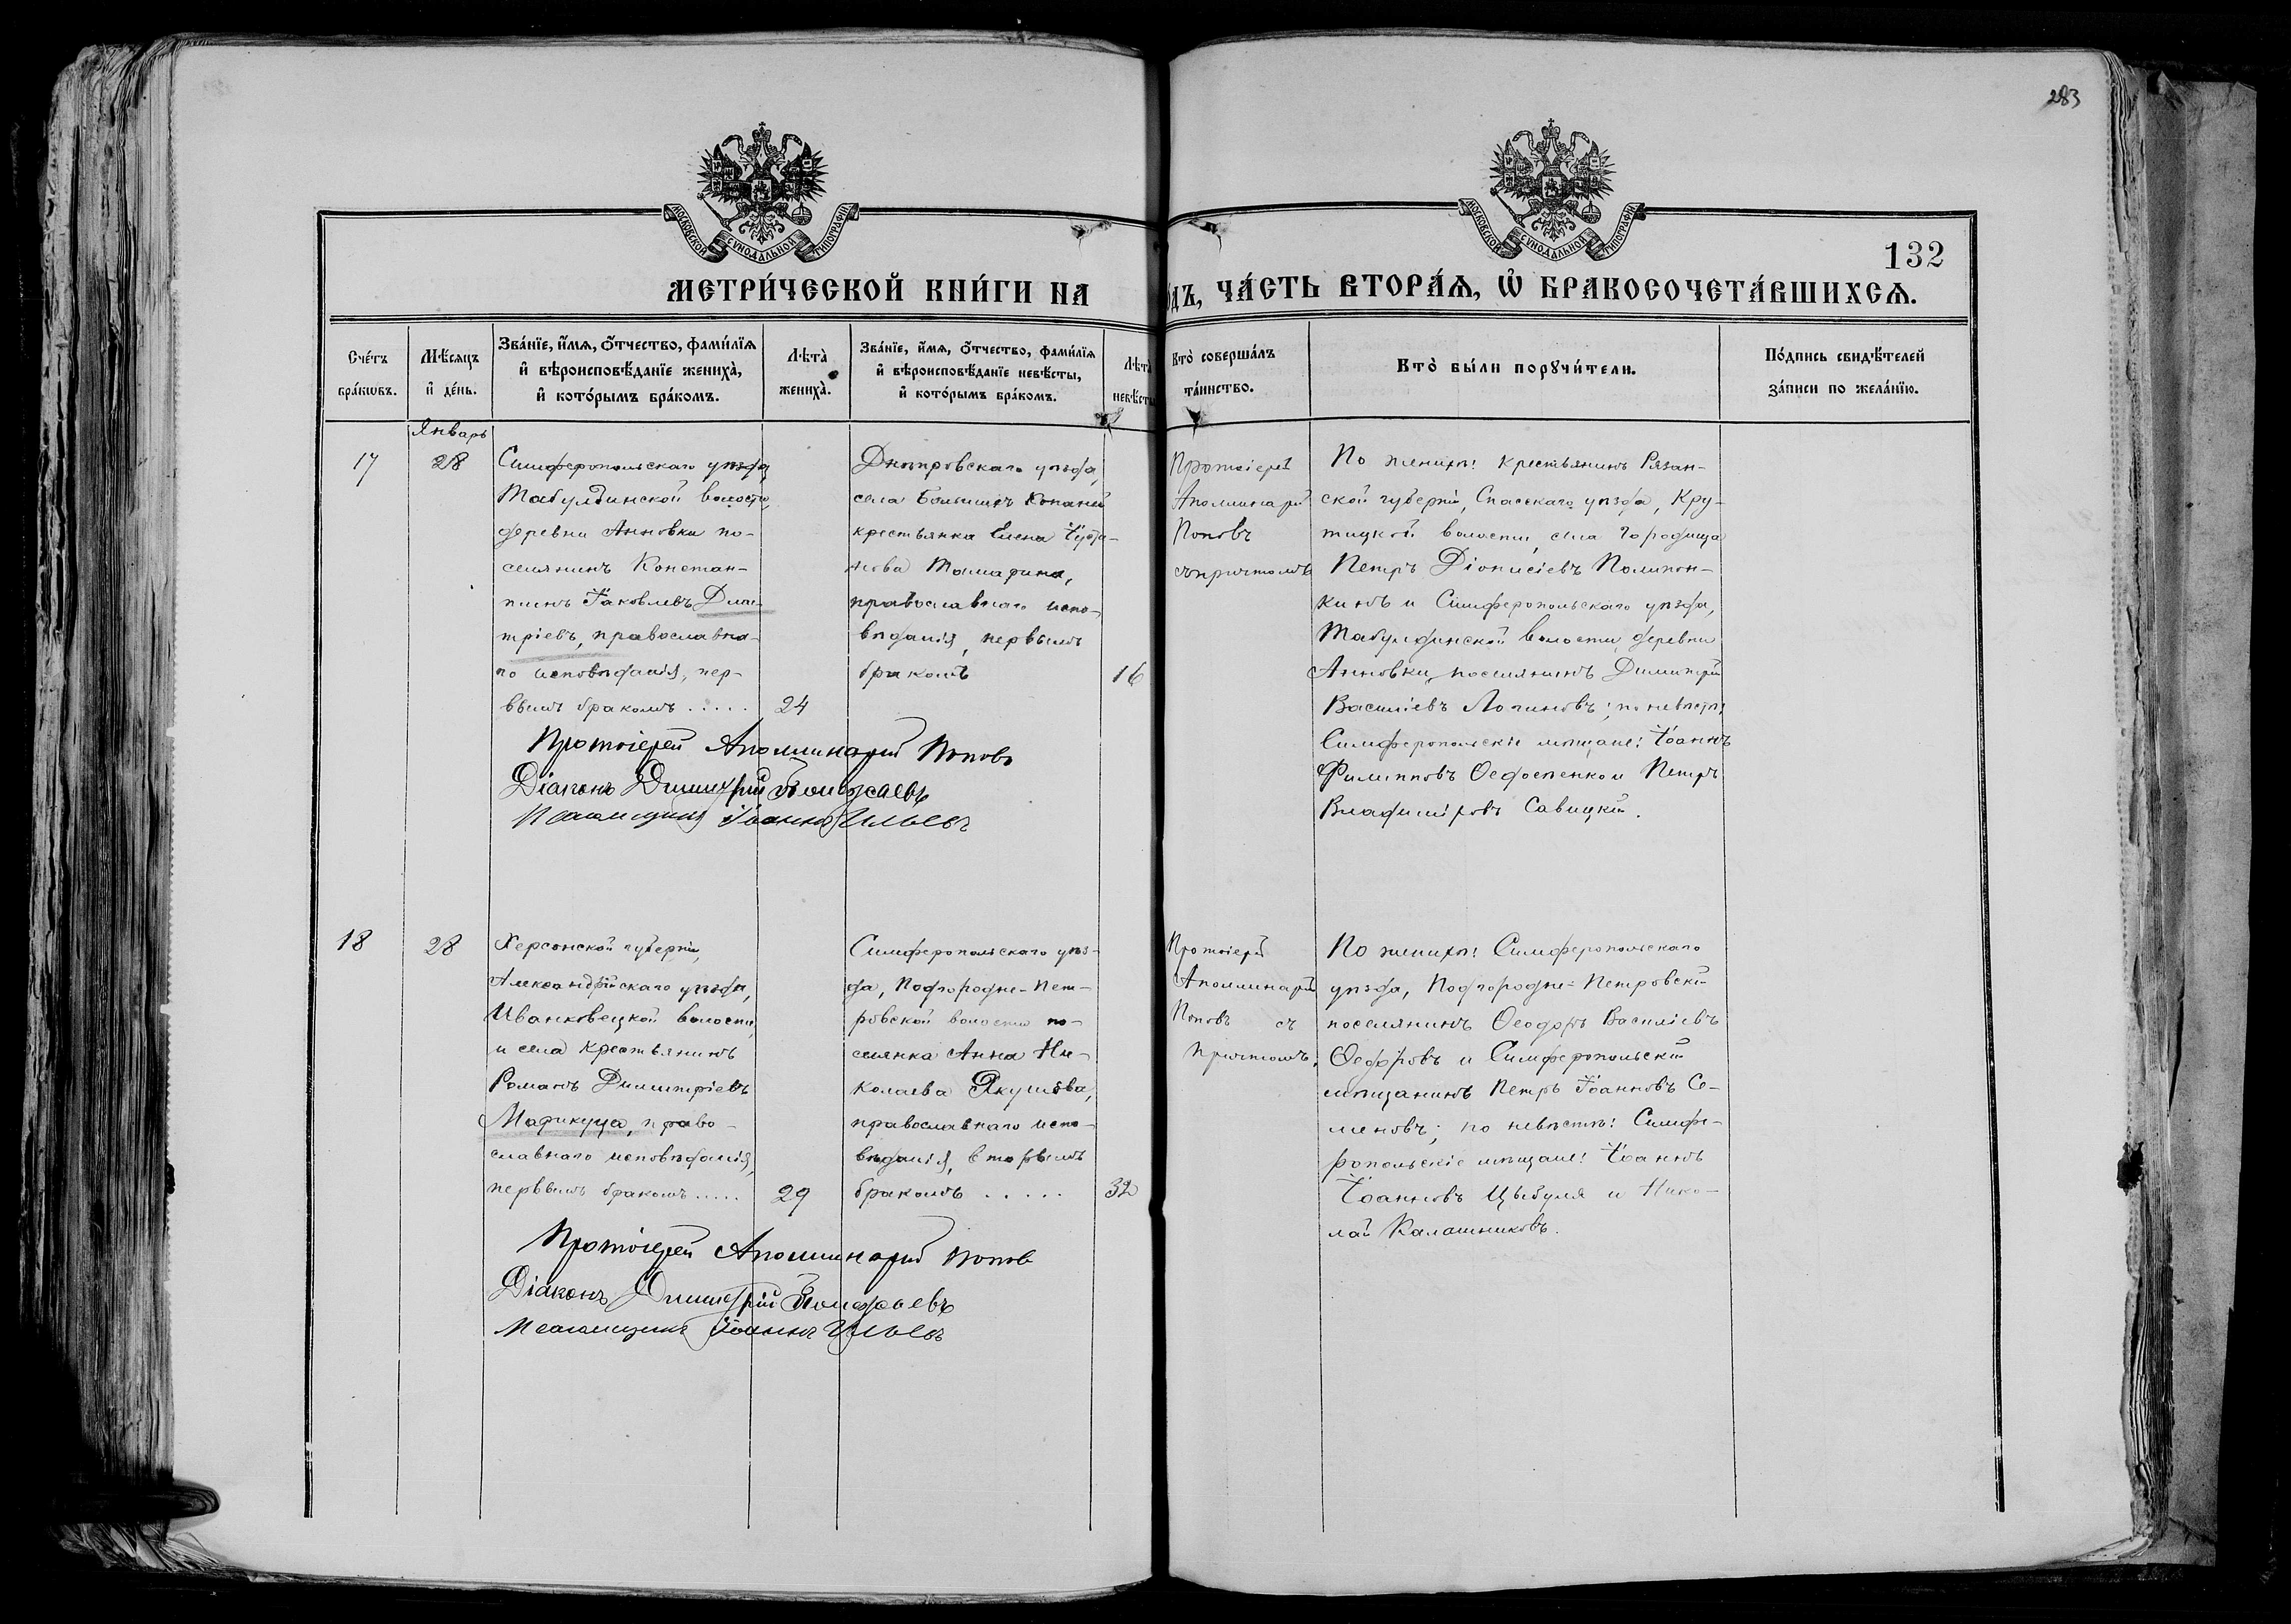 283
МОСКОВСКОЙ СѴНОДАЛЬНОЙ ТИПОГРАФІИ
МОСКОВСКОЙ СѴНОДАЛЬНОЙ ТИПОГРАФІИ
132
МЕТРИ́ЧЕСКОЙ КНИ́ГИ НА
ОДЪ, ЧА́СТЬ ВТОРА́Ѧ, Ѡ҆ БРАКОСОЧЕТА́ВШИХСѦ.
Сче́тъ
бра́кѡвъ.
Мѣ́сяцъ
и҆ де́нь.
Зва́нїе, и҆́мя, ѻ҆́тчество, фами́лїя
и҆ вѣроисповѣ́данїе жениха̀,
и҆ кото́рымъ бра́комъ.
Лѣта̀
жениха̀.
Зва́нїе, и҆́мя, ѻ҆́тчество, фами́лїя
и҆ вѣроисповѣ́данїе невѣ́сты,
и҆ кото́рымъ бра́комъ.
Лѣта̀
невѣ́сты
Кто̀ соверша́лъ
та́инство.
Кто̀ бы́ли порꙋчи́тели.
По́дпись свидѣ́телей
за́писи по жела́нїю.
Январь
17
28
Симферопольскаго уѣзда,
Табулдинской волости,
деревни Анновки по-
селянинъ Констан-
тинъ Іаковлевъ Дими-
тріевъ, православна-
го исповѣданія, пер-
вымъ бракомъ . . . . .
24
Днѣпровскаго уѣзда,
села Большихъ Копаней
крестьянка Елена
православнаго испо-
вѣданія, первымъ
бракомъ
16
Протоіерей
Аполлинарій
Поповъ
съ причтомъ
По женихѣ: крестьянинъ Рязан-
ской губерніи, Спасскаго уѣзда, Кру-
тицкой волости, села Городища
Петръ Діонисіевъ
и Симферопольскаго уѣзда,
Табулдинской волости, деревни
Анновки, поселянинъ Димитрій
Василіевъ Логиновъ; по невѣстѣ:
Симферопольскіе мѣщане: Іоаннъ
Филипповъ Ѳедосенко и Петръ
Владиміровъ Савицкій.
Протоіерей Аполлинарій Поповъ
Діаконъ Димитрій
Псаломщикъ Іоаннъ Ильевъ
18
28
Херсонской губерніи,
Александрійскаго уѣзда,
Иванковецкой волости
и села крестьянинъ
Романъ Димитріевъ
Марикуца, право-
славнаго исповѣданія,
первымъ бракомъ . . . . .
29
Симферопольскаго уѣз-
да, Подгородне-Пет-
ровской волости по-
селянка Анна Ни-
колаева Якушова,
православнаго испо-
вѣданія, вторымъ
бракомъ . . . . .
32
Протоіерей
Аполлинарій
Поповъ съ
причтомъ.
По женихѣ: Симферопольскаго
уѣзда, Подгородне-Петровскій
поселянинъ Ѳеодоръ Василіевъ
Ѳедоровъ и Симферопольскій
мѣщанинъ Петръ Іоанновъ Се-
меновъ; по невѣстѣ: Симфе-
ропольскіе мѣщане: Іоаннъ
Іоанновъ Цыбуля и Нико-
лай Калашниковъ.
Протоіерей Аполлинарій Поповъ
Діаконъ Димитрій
Псаломщикъ Іоаннъ Ильевъ